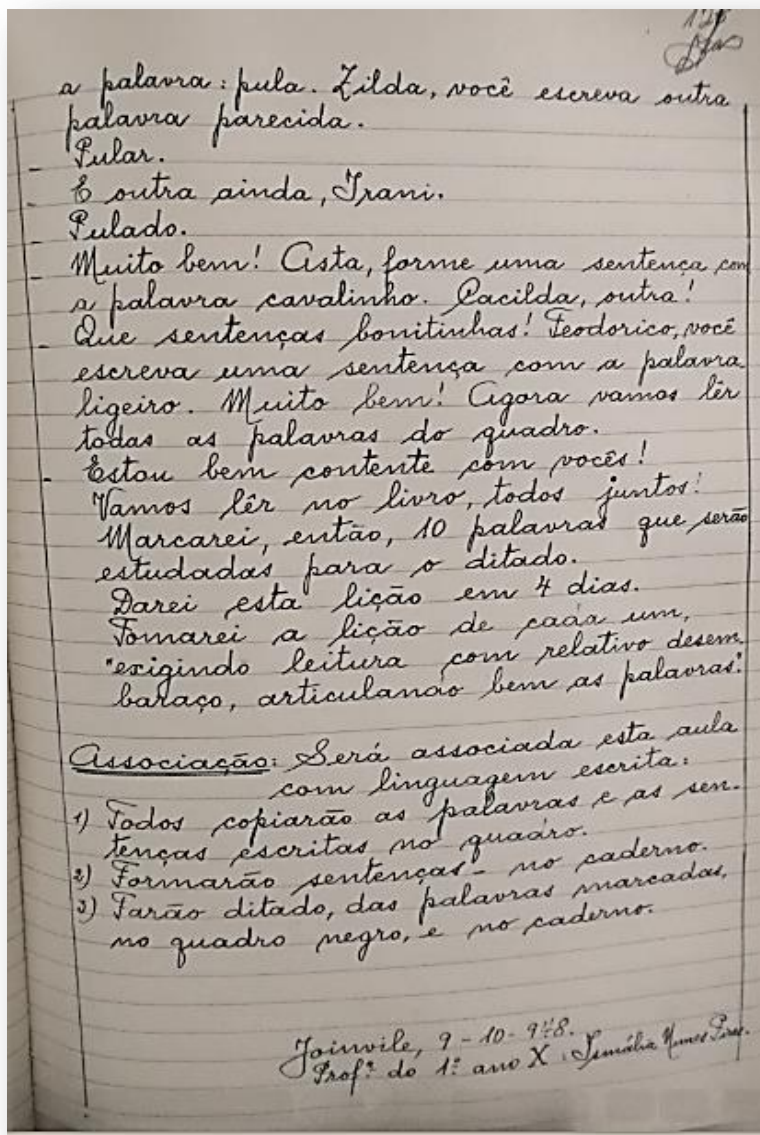 128
a palavra: pula. Zilda, você escreva outra
palavra parecida.
- Pular.
- E outra ainda, Irani.
- Pulado.
- Muito bem! Asta, forme uma sentença com
a palavra cavalinho. Cacilda, outra!
- Que sentenças bonitinhas! Teodorico, você
escreva uma sentença com a palavra
ligeiro. Muito bem! Agora vamos lêr
todas as palavras do quadro.
- Estou bem contente com vocês!
Vamos lêr no livro, todos juntos!
Marcarei, então, 10 palavras que serão
estudadas para o ditado.
Darei esta lição em 4 dias.
Tomarei a lição de cada um,
"exigindo leitura com relativo desem
baraço, articulando bem as palavras".
Associação: Será associada esta aula
com linguagem escrita:
1) Todos copiarão as palavras e as sen-
tenças escritas no quadro.
2) Formarão sentenças - no caderno.
3) Farão ditado, das palavras marcadas,
no quadro negro, e no caderno.
Joinvile, 9-10-948.
Profª do 1º ano X: Ismália Nunes Pires.